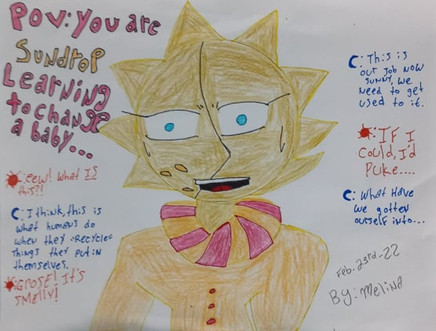 POV: You are
Sundrop
Learning
to change
a baby...
:eew! What IS
this?!
C: I think, this is
what humans do
when they "RECYCLE"
things they put in
themselves.
:GROSE! It's
smelly!
C: This is
out job now
Sunny, we
need to get
used to it.
:IF I
Could, I'd
Puke....
C: What have
we gotten
ourself into...
Feb. 23rd-22
By: Melina